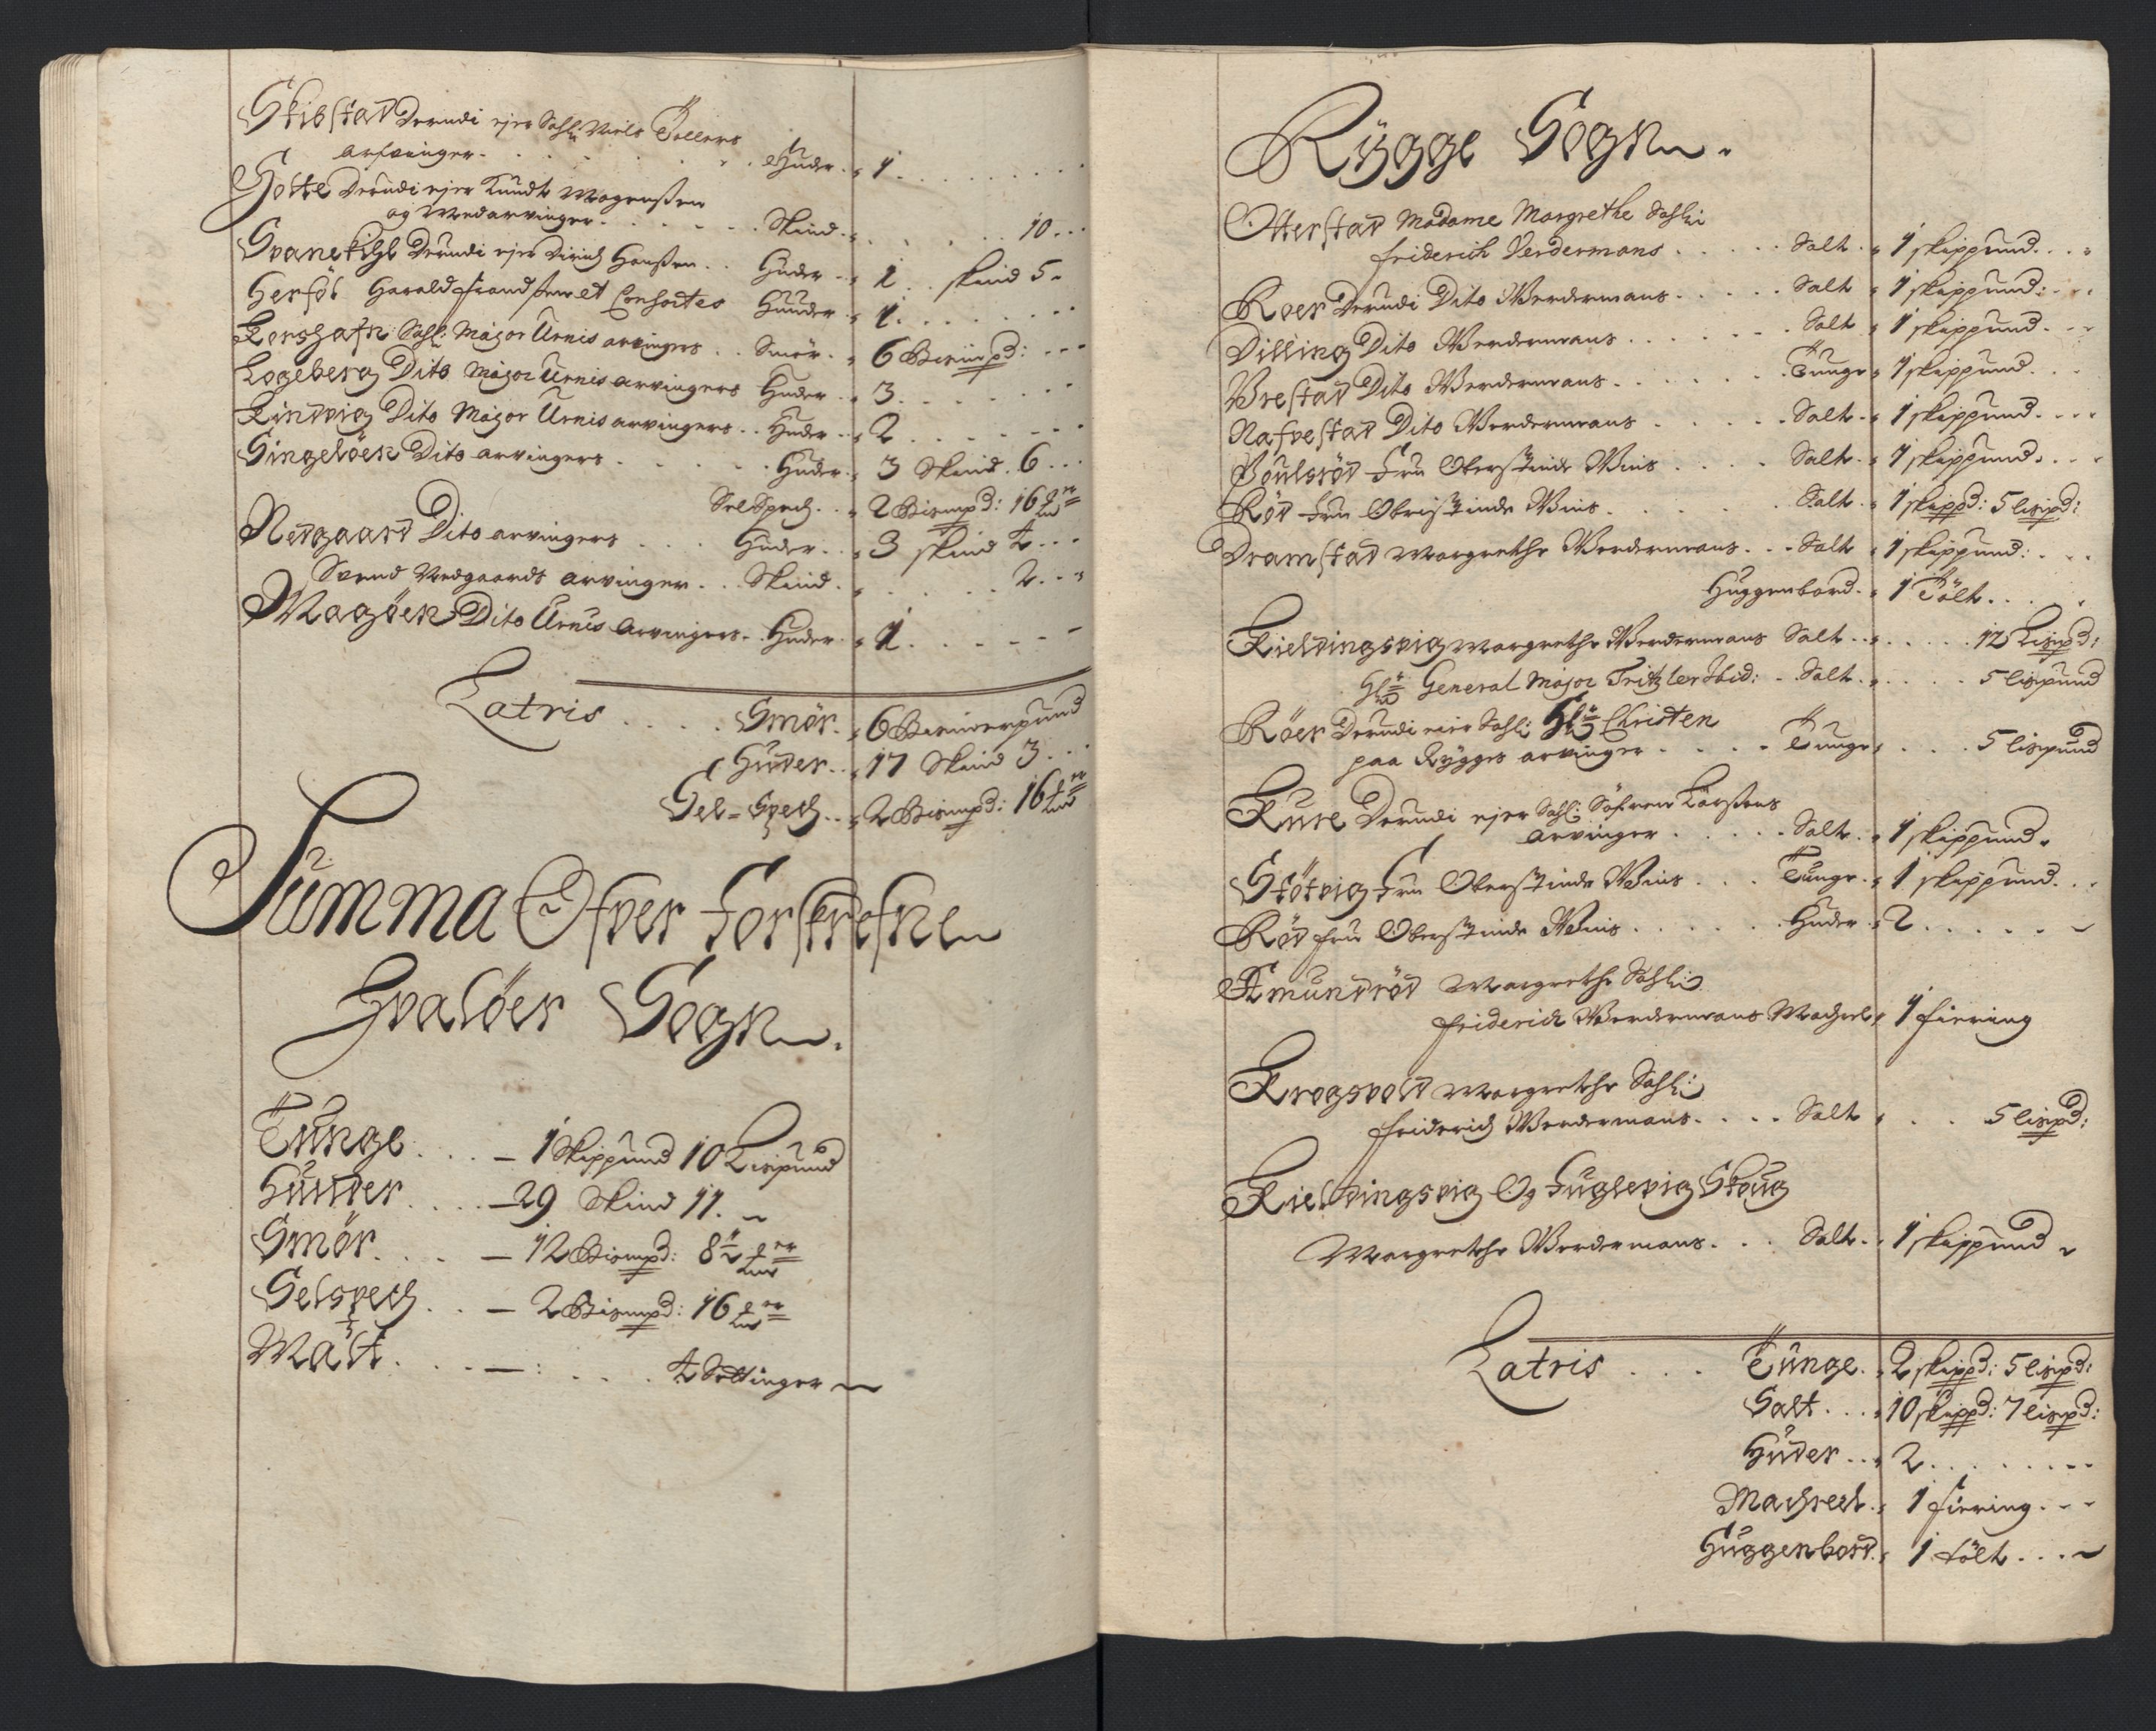 Skibstad Derudi ejer Sahl: Niels Tollers
arfvinger . . . Huder . . 1 . . .
Gotte Derudi ejer Knudt Mogenssen
og Medarvinger . . . Skind . . . 10 . . .
Spanekihl Derudi ejer Dirich Hanssen . . Huder . . 1 . . skind 5 .
Herföl Harald frandssen et Consortes Huuder . 1 . . .
Kershafn: Sahl: Major Urnis arvingers . . Smör . . 6 Bismpd: . . .
Logeberg Dito Major Urnis arvingers Huder . . 3 . . .
Rindvig Dito Major Urnis arvingers . . Huder . . 2 . . .
Singelöen Dito arvingers . . . Huder . 3 Skind . 6 . . .
Sel Spech . . 2 Bismpd: 16
Nedgaard Dito arvingers . . . Huder . . 3 skind 4 . . .
Svend Nedgaards arvinger . . Skind . . . . 2 . . .
Magöen Dito Urnis Arvingers . . Huder . 1 . . .
Latris . . . . Smör . 6 Bismerpund
Huder . . 17 Skind 3 . . .
Sel=Spech . . 2 Bismpd: 16
Summa Ofver Forskrefne
Hvalöer Sogn.
Tunge . . . – 1 Skippund 10 Lispund
Huuder . . . – 29 Skind 11.
Smör . . . – 12 Bismpd: 8½
Selspech . . – 2 Bismpd: 16
Malt . . . – : . . . 4 Settinger
Rygge Sogn.
Otterstad Madame Margrethe Sahli
friderich Verdermans . . . Salt . 1 skippund . . .
Roer Derudi Dito Werdermans . . . Salt 1 skippund: . . .
Dilling Dito Werdermans . . . Salt 1 skippund . . .
Vrestad Dito Werdermans . . . Tunge 1 skippund . . .
Nafvestad Dito Werdermans . . . Salt . . 1 skippund . . .
Boulsröd Fru Oberstinde Wins . . . Salt . 1 skippund . . .
Röd Fru Obristinde Wins . . . Salt . 1 skippd: 5 lispd:
Dramstad Margrethe Werdermans . . Salt 1 skippund: . . .
Huggenbord . 1 Tölt . . .
Kieldingsvig Margrethe Werdermans Salt . . . . 12 Lispd:
General Major Tritzler Ibid: . Salt . . . . 5 lispund
Röer Derudi ejer Sahli Christen
paa Rygges arvinger . . . Tunge . . . 5 lispund
Kure Derudi ejer Sahli Söfren Larssens
Arvinger . . . Salt . 1 skippund .
Stötvig Fru Oberstinde Wins . . . Tunge . 1 skippund . .
Röd fru Oberstinde Wins . . . Huder . 2 . . .
Amundröd Margrethe Sahli
friderich Werdermans Machrel 1 fiering
Krogsvold Margrethe Sahli
friderich Werdermans . . . Salt . . . 5 lispd:
Kieldingsvig Og Fuglevig Skoug
Margrethe Werdermans . . . Salt . 1 skippund
Latris . . . Tunge . 2 skippd: 5 lispd:
Salt . . . 10 skippd: 7 lispd:
Huder . . 2 . . .
Machrell . 1 fiering . . .
Huggenbord . 1 tölt . . .